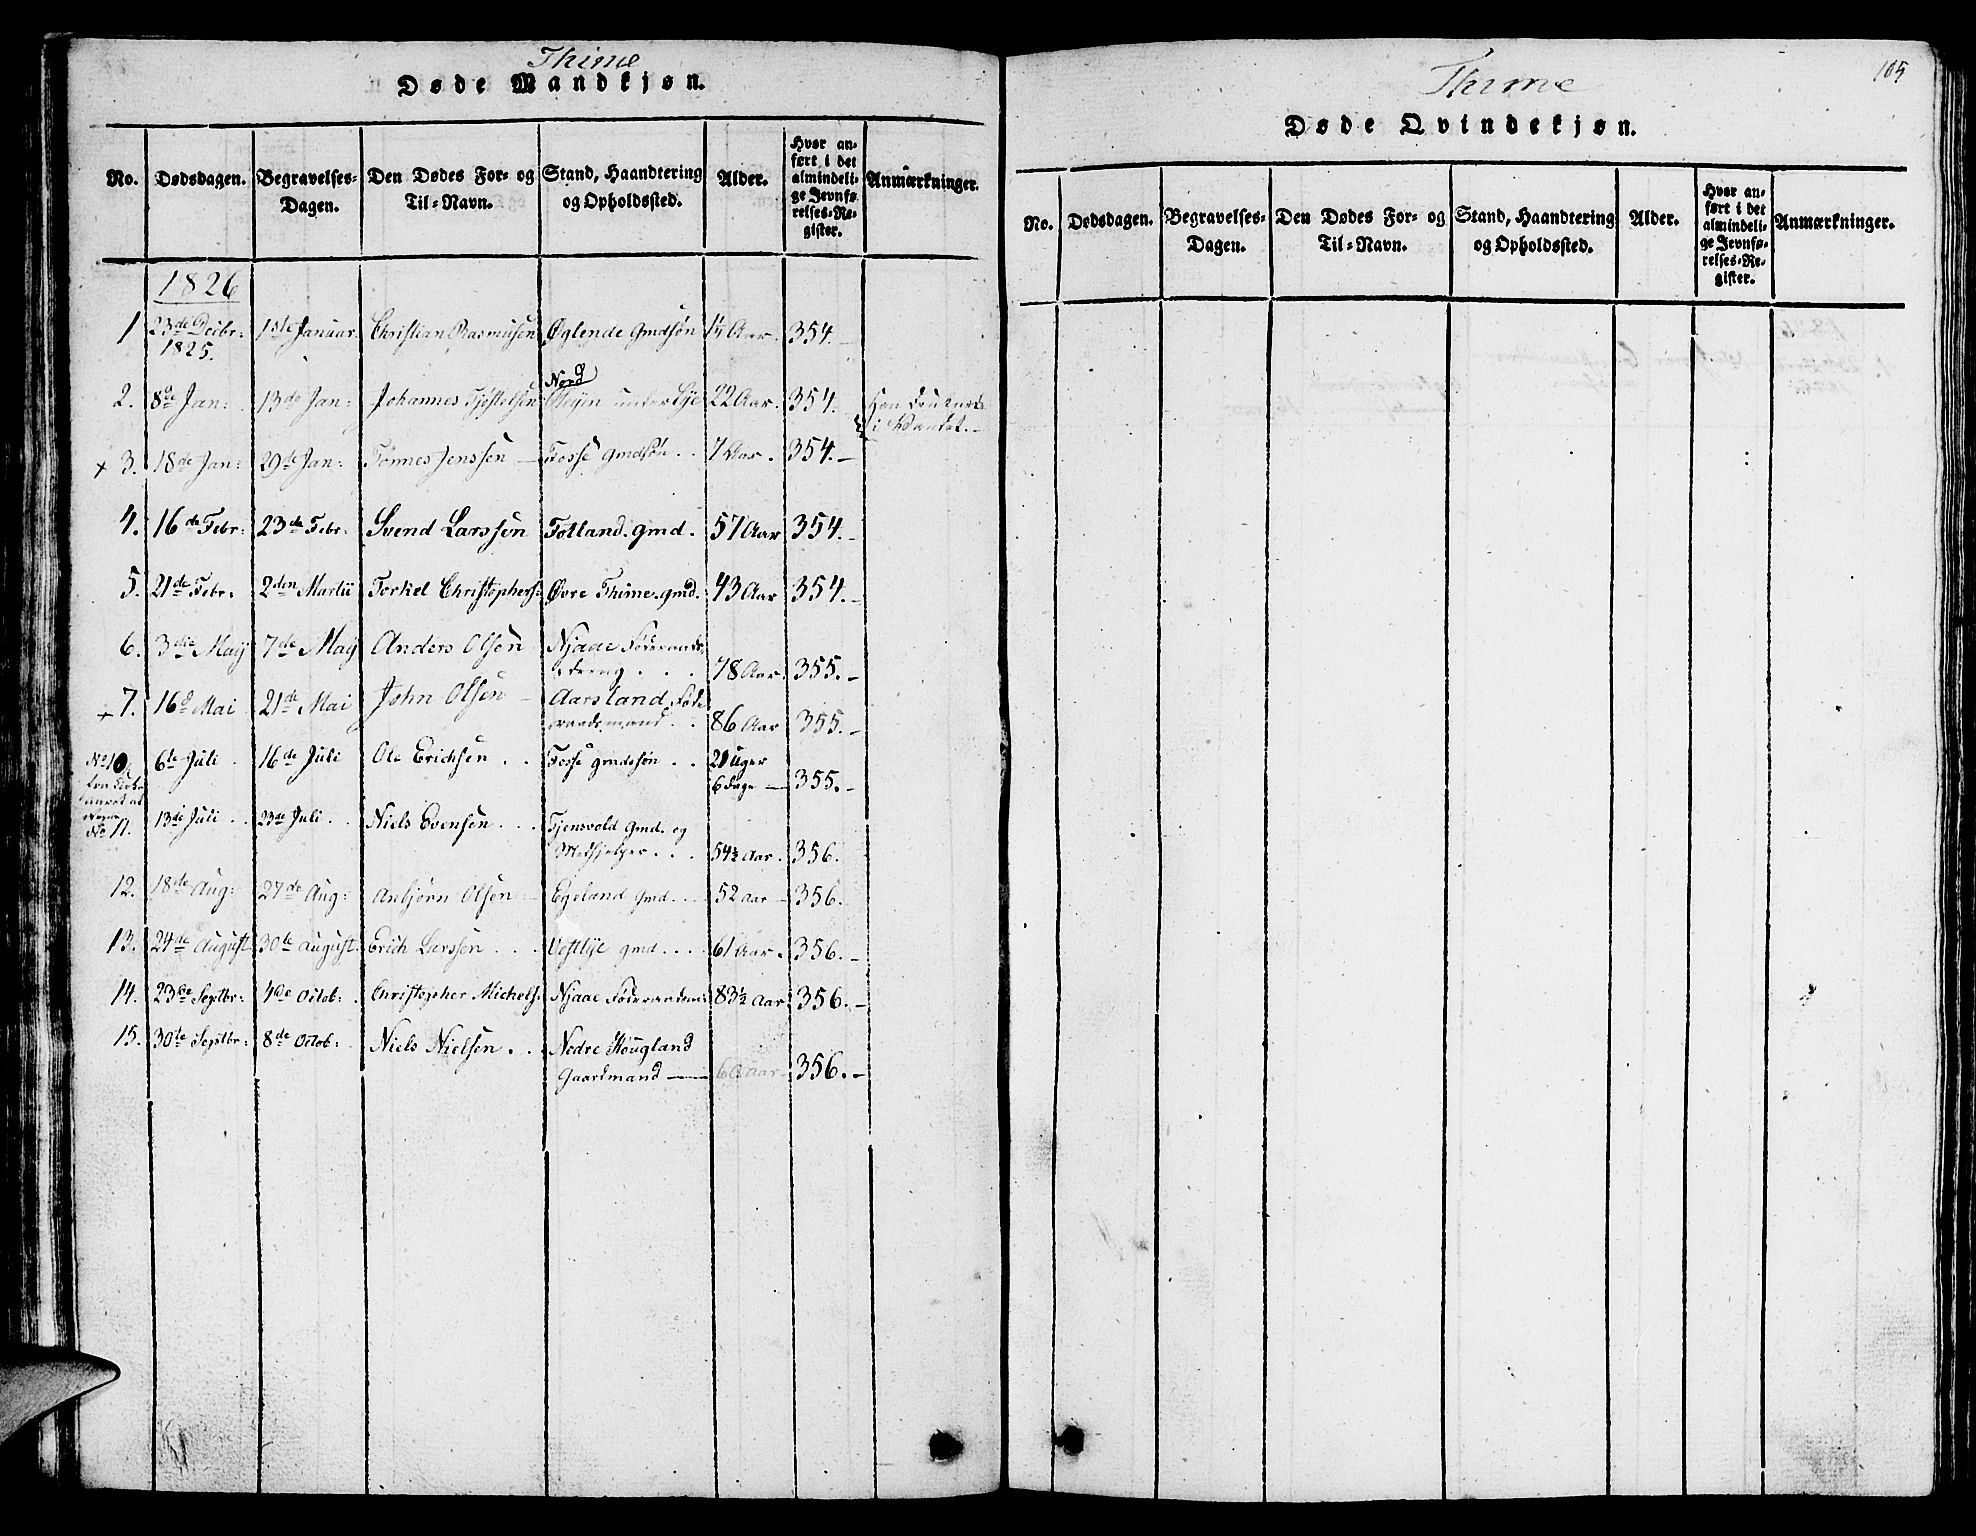 Thime
Døde Mandkjøn.
No. Dødsdagen. Begravelses-Dagen. Den Dødes For- og Til-Navn. Stand, Haandtering og Opholdssted. Alder. Hvor anført i det almindelige Jevnførelses-Register. Anmærkninger.
1826
1 23de Decbr: 1825. 1ste Januar. Christian Rasmusen Øglende Gmdsøn Aar. 354.
2. 8de Jan: 13de Jan: Johannes Tjøstelsen Nord under Lye 22 Aar. 354. Han i Vandet.
+ 3. 18de Jan: 29de Jan: Tønnes Jenssen Fosse gmdsøn 7 Aar. 354.
4. 16de Febr: 23de Febr: Svend Larssen Totland. gmd. 57 Aar 354.
5. 21de Febr. 2den Martii Torkel Christophers: Øvre Thime. gmd. 43 Aar 354.
6. 3die May 7de May Anders Olsen Njaae 78 Aar. 355.
+ 7. 16d Mai 21de Mai John Olsen Aarsland Føderaadsmand 86 Aar 355.
No 10. 6te Juli 16de Juli Ole Erichsen Fosse gmdssøn 2 Uger 6 dage 355.
No 11. 13de Juli 23de Juli Niels Evensen Tjensvold gmd. og Medhjelper 54½ Aar. 356.
12. 18de Aug: 27de Aug: Anbjørn Olsen Egeland gmd. 52 aar 356.
13. 24de August 30te August Erich Larssen Vestlye gmd. 61 Aar. 356.
14. 23de Septbr: 4de Octob: Christopher Michels: Njaae Føderaadsm: 83½ Aar 356.
15. 30te Septbr: 8de Octob: Niels Nielsen Nedre Hougland Gaardmand Aar 356.
105
Thime
Døde Qvindekjøn.
No. Dødsdagen. Begravelses-Dagen. Den Dødes For- og Til-Navn. Stand, Haandtering og Opholdssted. Alder. Hvor anført i det almindelige Jevnførelses-Register. Anmærkninger.